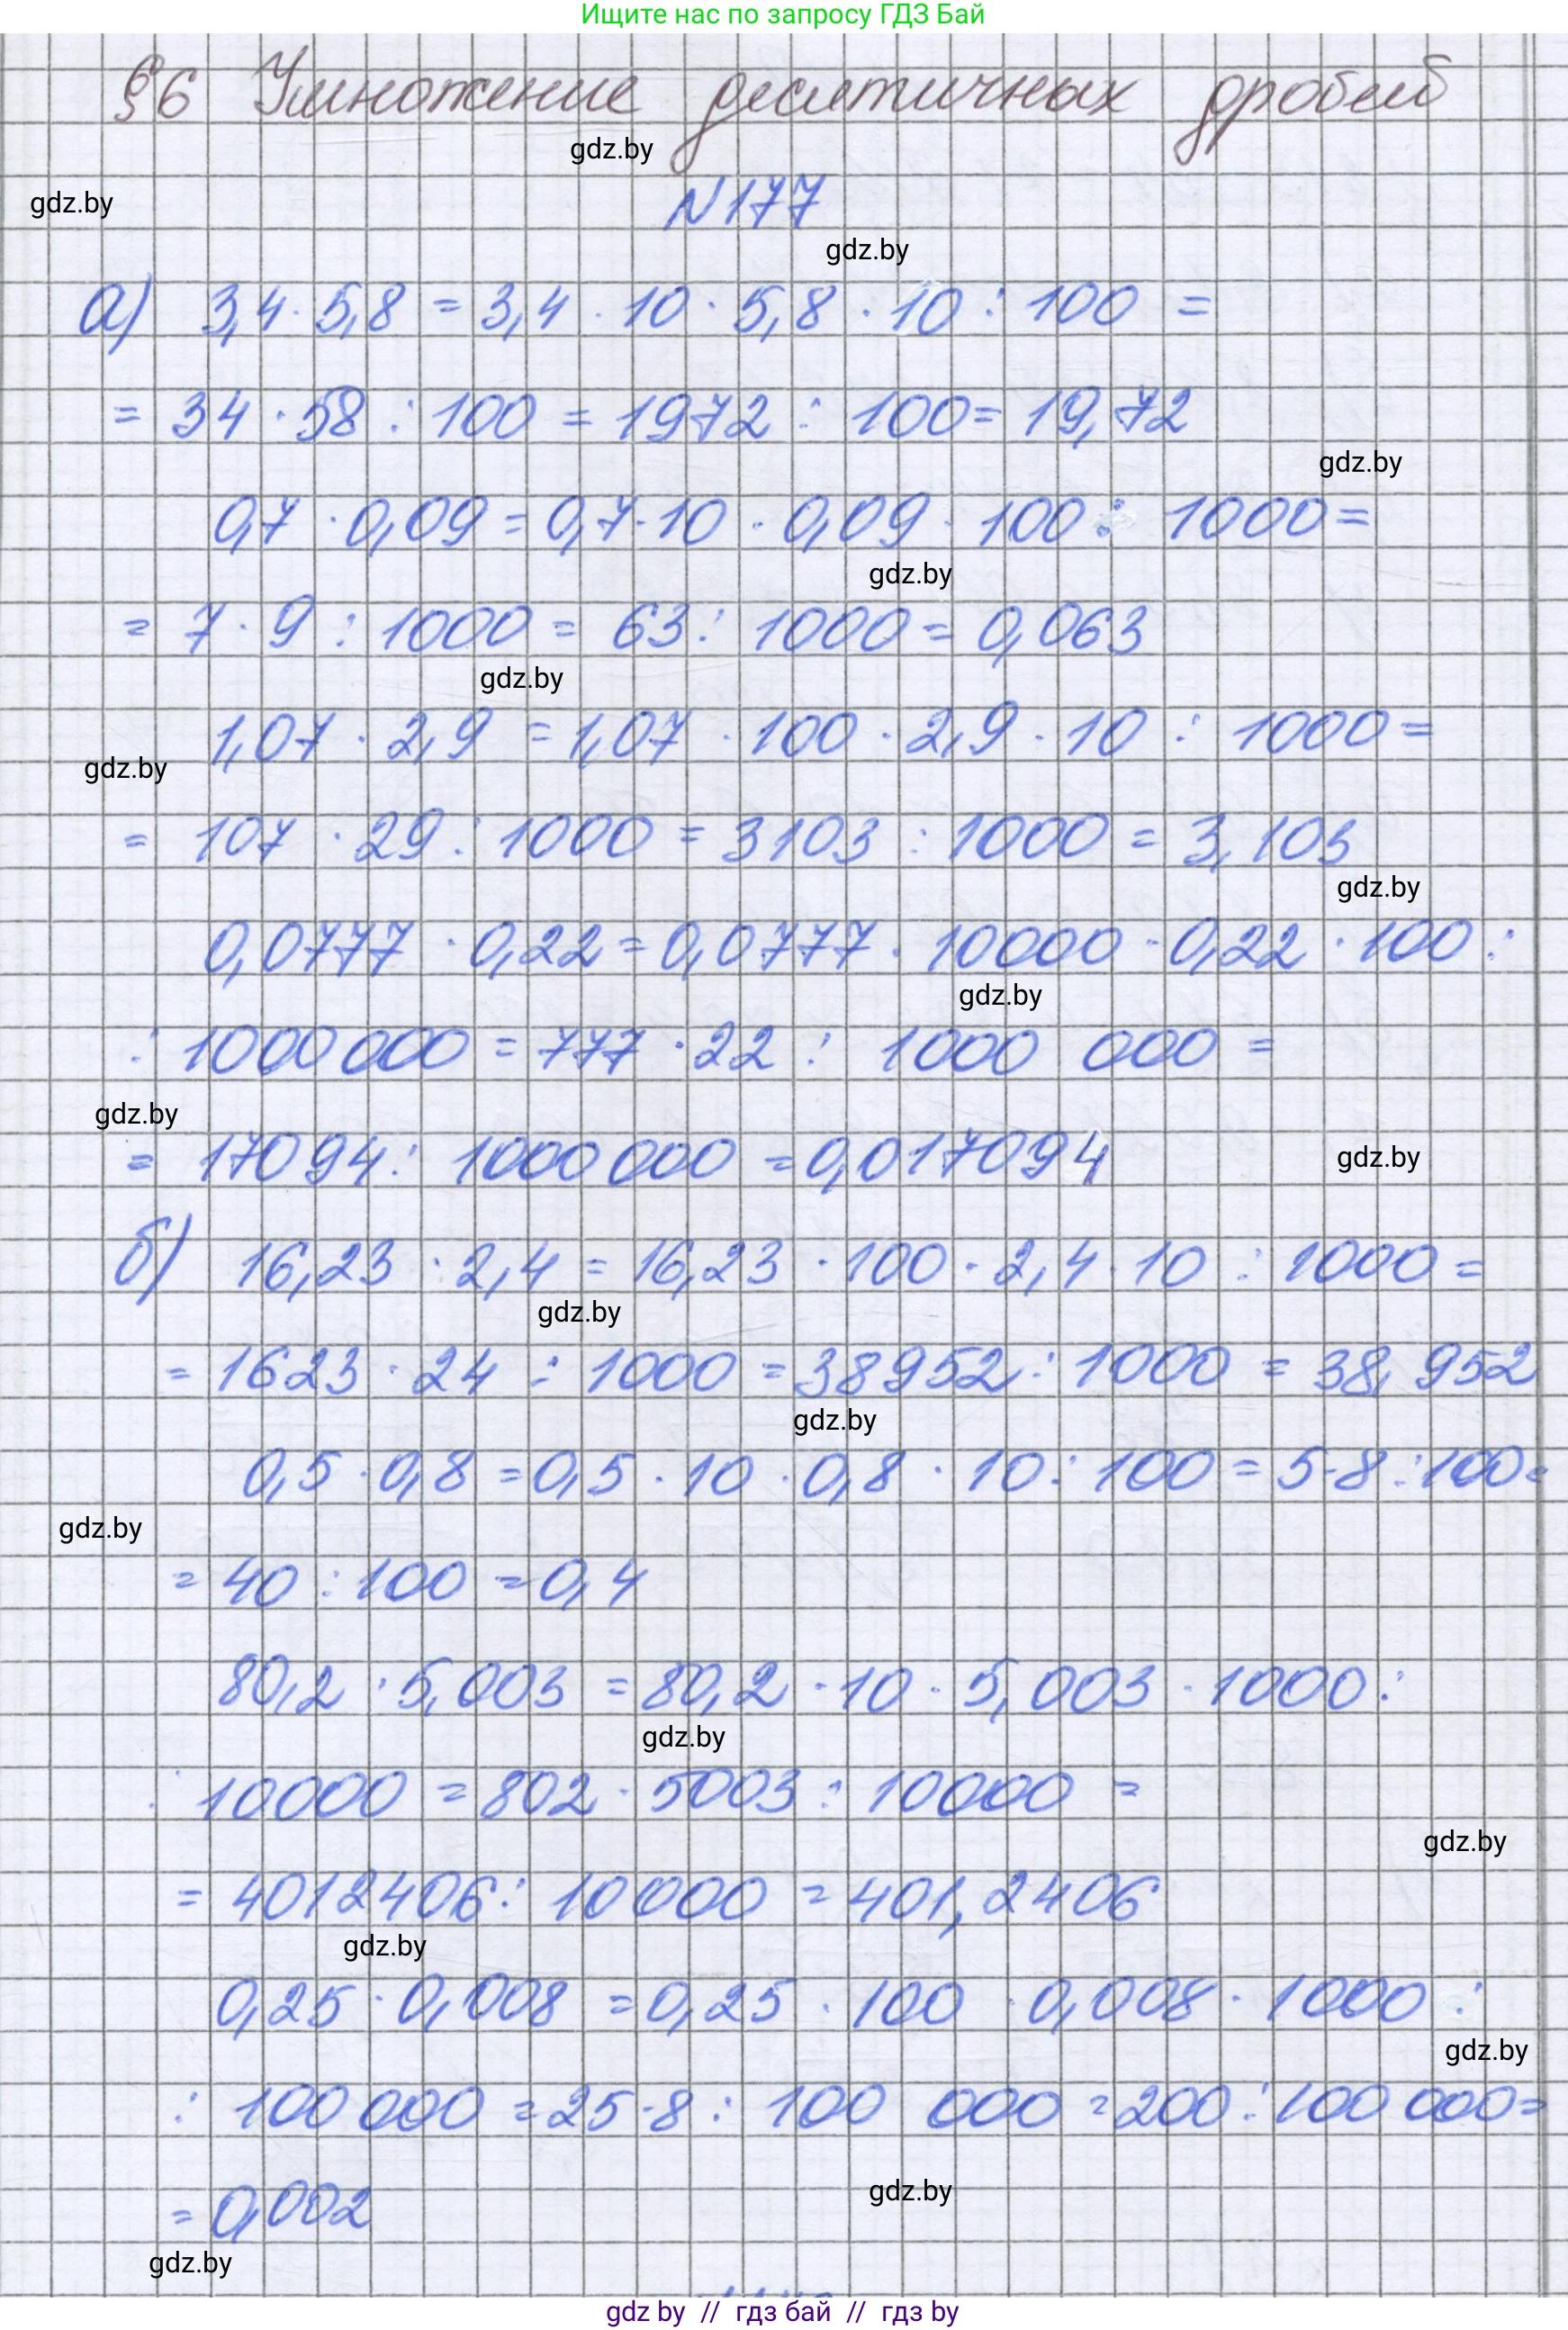 Ищите нас по запросу ГДЗ Бай
§6 Умножение десятичных дробей
gdz.by
gdz.by
N177
gdz.by
а) 3,4 · 5,8 = 3,4 · 10 · 5,8 · 10 : 100 =
= 34 · 58 : 100 = 1972 : 100 = 19,72
gdz.by
0,7 · 0,09 = 0,7 · 10 · 0,09 · 100 : 1000 =
gdz.by
= 7 · 9 : 1000 = 63 : 1000 = 0,063
gdz.by
1,07 · 2,9 = 1,07 · 100 · 2,9 · 10 : 1000 =
gdz.by
= 107 · 29 : 1000 = 3103 : 1000 = 3,103
gdz.by
0,0777 · 0,22 = 0,0777 · 10000 · 0,22 · 100 :
gdz.by
: 1000 000 = 777 · 22 : 1000 000 =
gdz.by
= 17094 : 1000 000 = 0,017094
gdz.by
б) 16,23 · 2,4 = 16,23 · 100 · 2,4 · 10 : 1000 =
gdz.by
= 1623 · 24 : 1000 = 38952 : 1000 = 38,952
gdz.by
0,5 · 0,8 = 0,5 · 10 · 0,8 · 10 : 100 = 5 · 8 : 100 =
gdz.by
= 40 : 100 = 0,4
80,2 · 5,003 = 80,2 · 10 · 5,003 · 1000 :
gdz.by
: 10000 = 802 · 5003 : 10000 =
gdz.by
= 4012406 : 10000 = 401,2406
gdz.by
0,25 · 0,008 = 0,25 · 100 · 0,008 · 1000 :
gdz.by
: 100 000 = 25 · 8 : 100 000 = 200 : 100 000 =
gdz.by
= 0,002
gdz.by
gdz by // гдз бай // гдз by